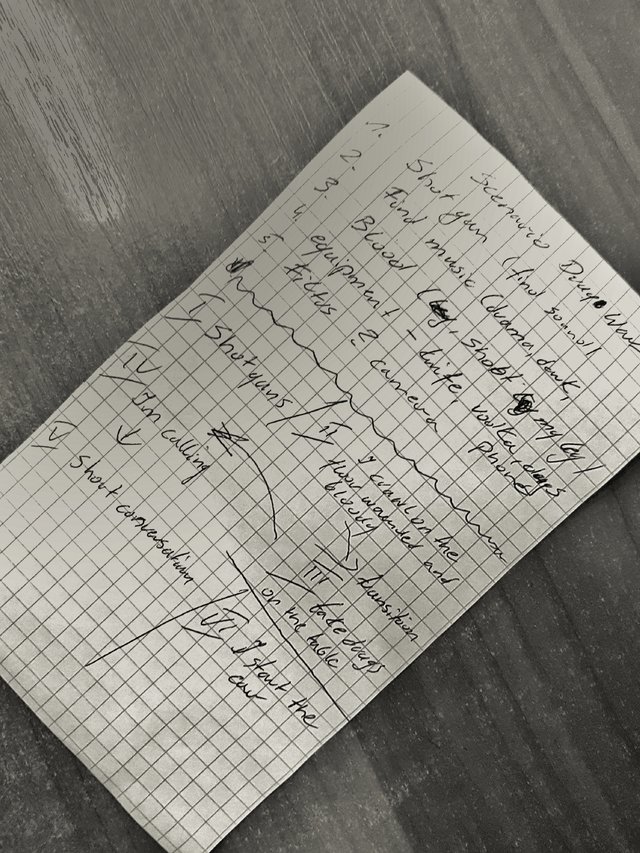 Scenario Drugs War
1. Shot gun (find sound)
2. Find music (drama, dark,
3. Blood (leg, shoot my leg)
4 equipment - knife vodka, drugs
5 Fictus ? camera phone
I Shotguns
II I crawl on the
floor wounded and
bloody
transition
III take drugs
on the table
IV I'm calling
V Short conversation
VI I start the
car